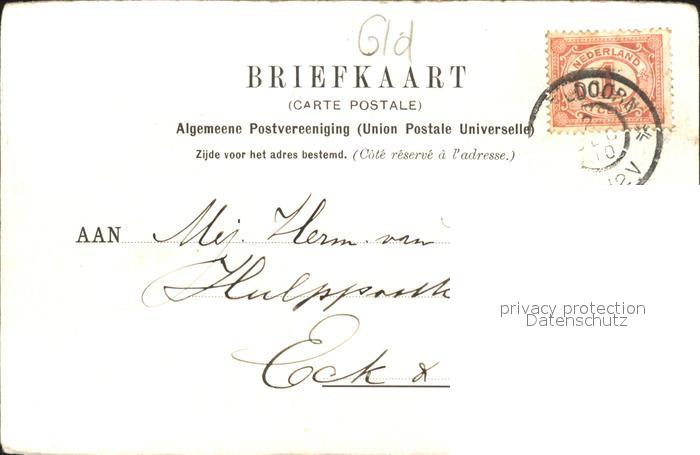 Gld
BRIEFKAART
(CARTE POSTALE)
Algemeene Postvereeniging (Union Postale Universelle)
Zijde voor het adres bestemd. (Côté réservé à l'adresse.)
NEDERLAND
1
LDOORN
12V
AAN Mej. Herm. van
Hulppostk
Eck &
privacy protection
Datenschutz